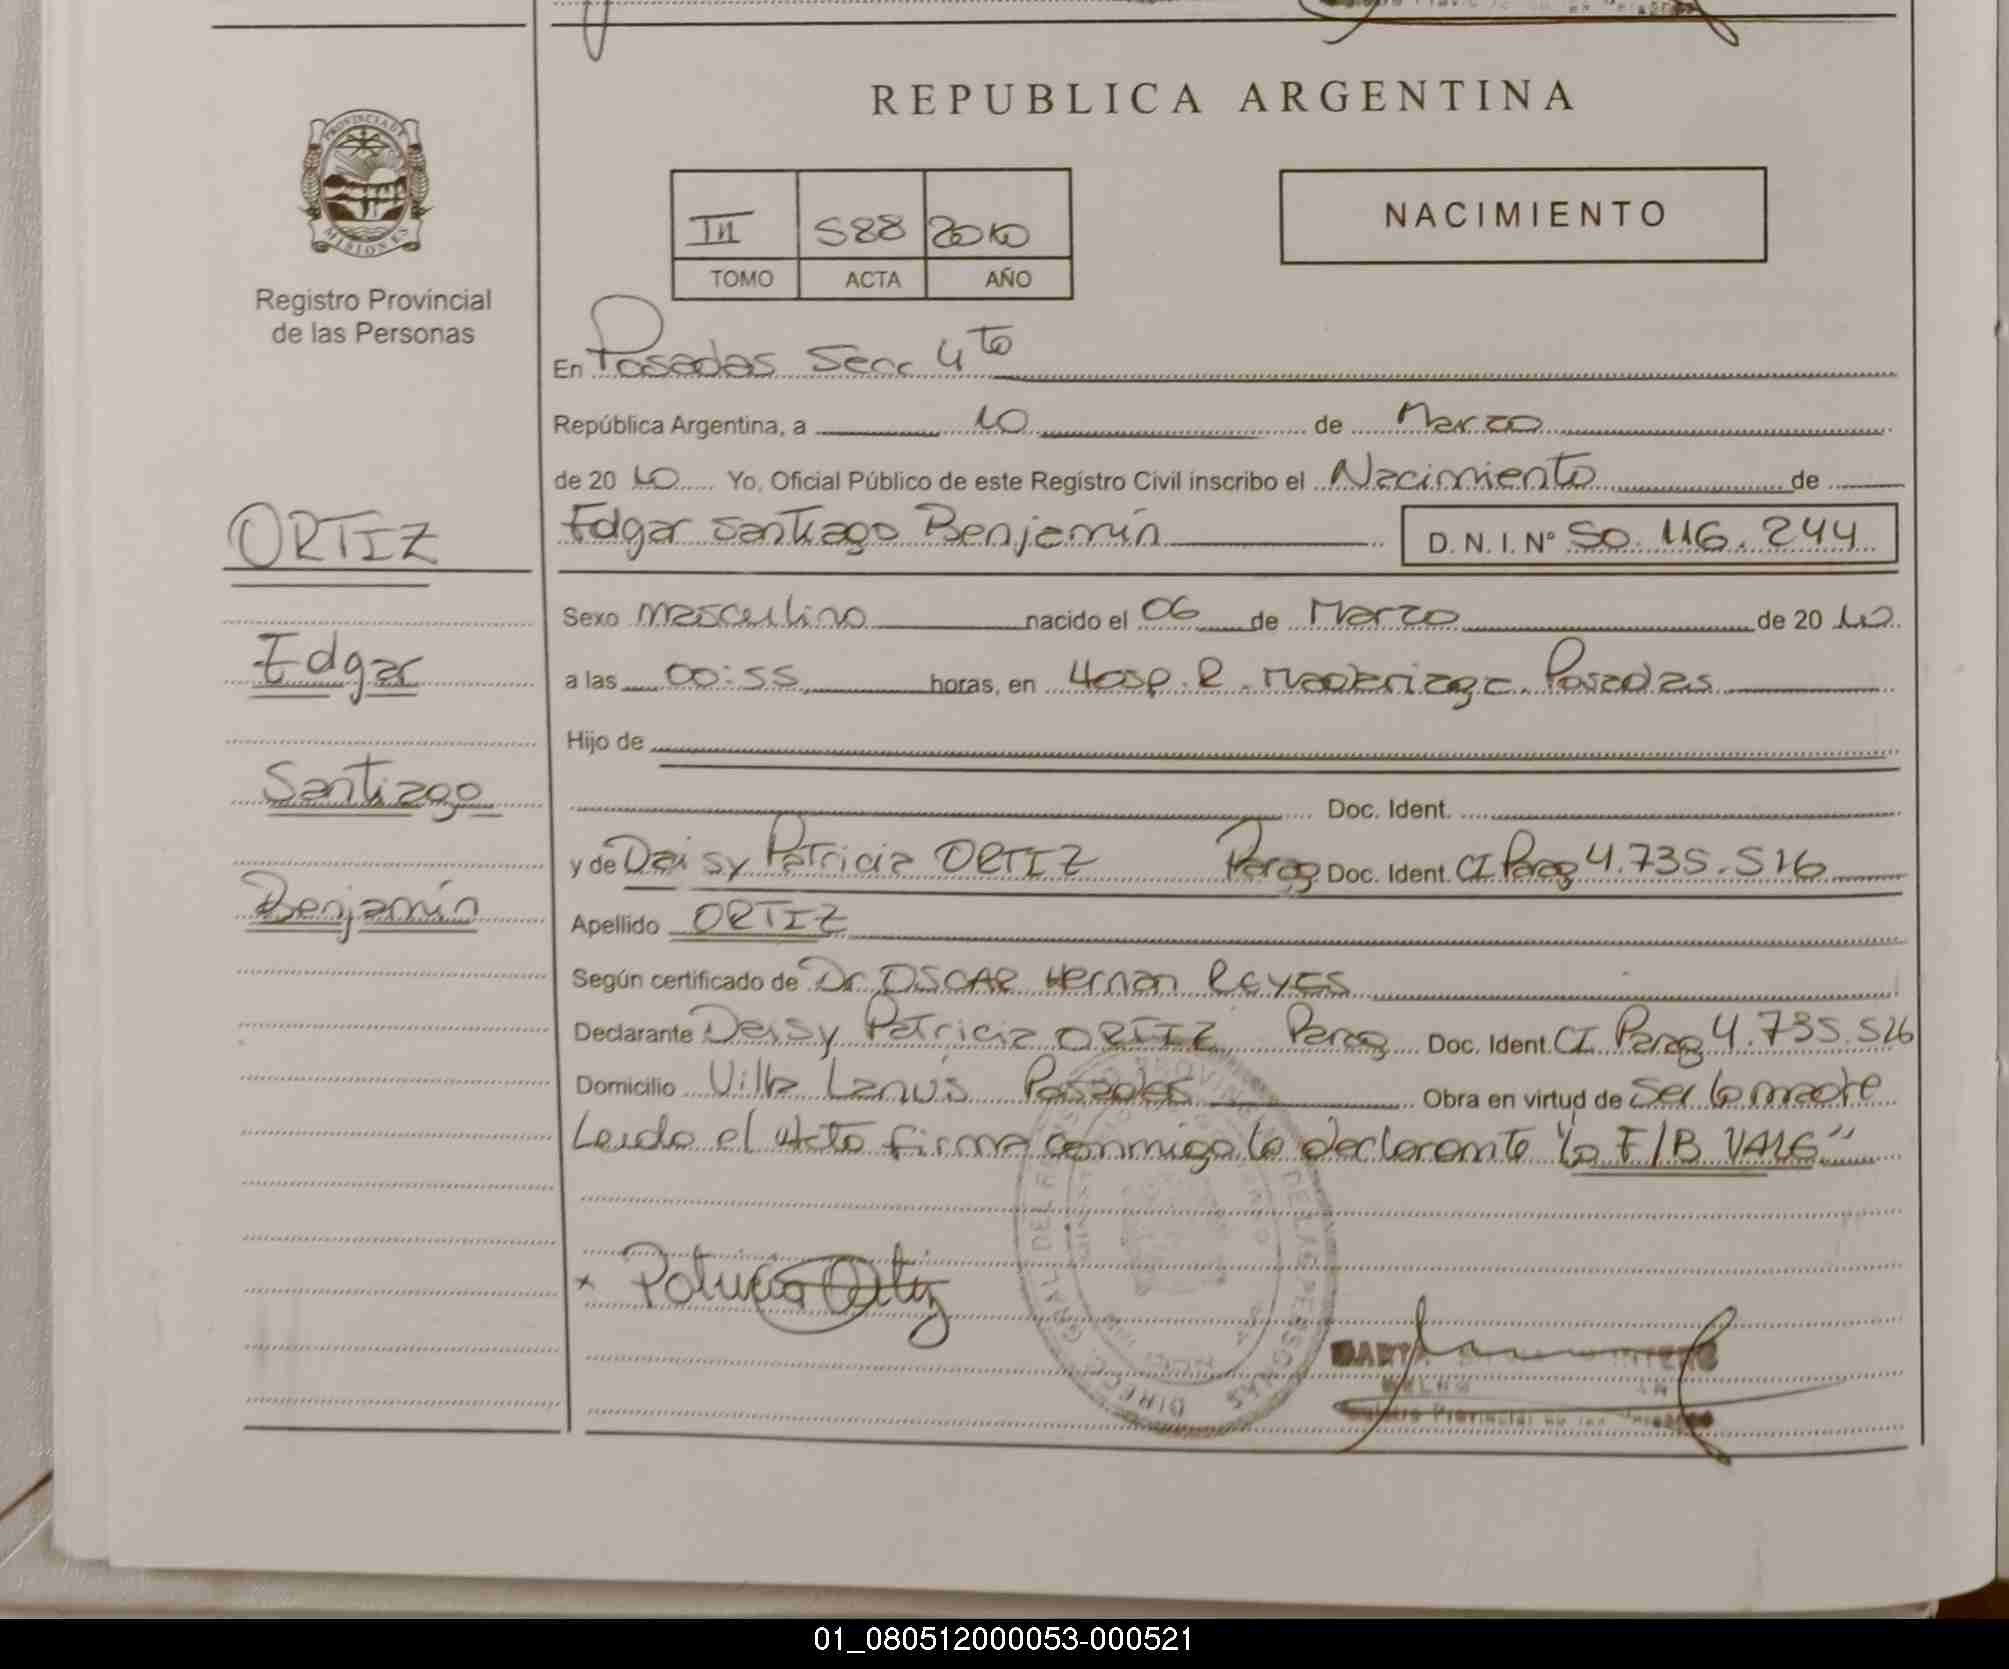 REPUBLICA ARGENTINA
PROVINCIA DE
MISIONES
Registro Provincial
de las Personas
III 588 2010
TOMO ACTA AÑO
NACIMIENTO
En Posadas Secc 4to
República Argentina, a 10 de Marzo
de 20 10 Yo, Oficial Público de este Registro Civil inscribo el Nacimiento de
Edgar Santiago Benjamín D. N. I. N° 50.116.244
ORTIZ
Edgar
Santiago
Benjamín
Sexo Masculino nacido el 06 de Marzo de 20 10
a las 00:55 horas, en Hosp. R. Madariaga. Posadas
Hijo de
Doc. Ident.
y de Deisy Patricia ORTIZ Parag Doc. Ident. CI Parag 4.735.516
Apellido ORTIZ
Según certificado de Dr OSCAR Hernan Reyes
Declarante Deisy Patricia ORTIZ Parag Doc. Ident. CI Parag 4.735.516
Domicilio Villa Lanús Posadas Obra en virtud de Ser la madre
Leída el Acta firma conmigo la declarante "lo F/B VALE"
x Patricia Ortiz
Provincial de las Personas
01_080512000053-000521